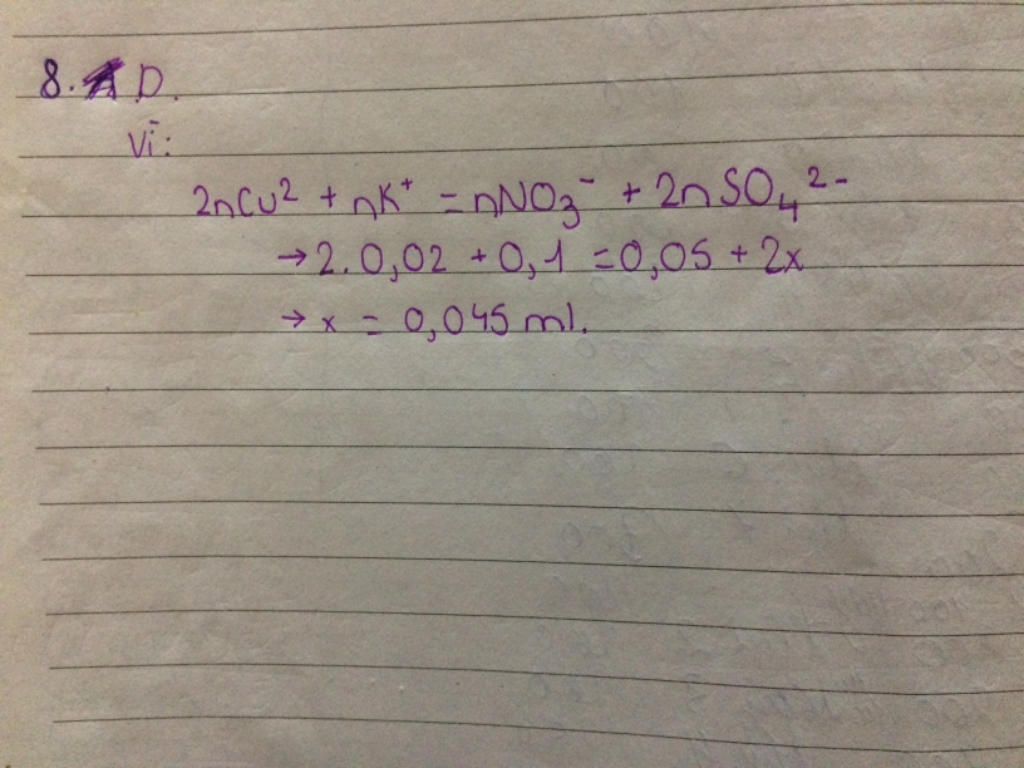 8. D.
Vì:
2nCu² + nK⁺ = nNO₃⁻ + 2nSO₄²⁻
→ 2.0,02 + 0,1 = 0,05 + 2x
→ x = 0,045 ml.